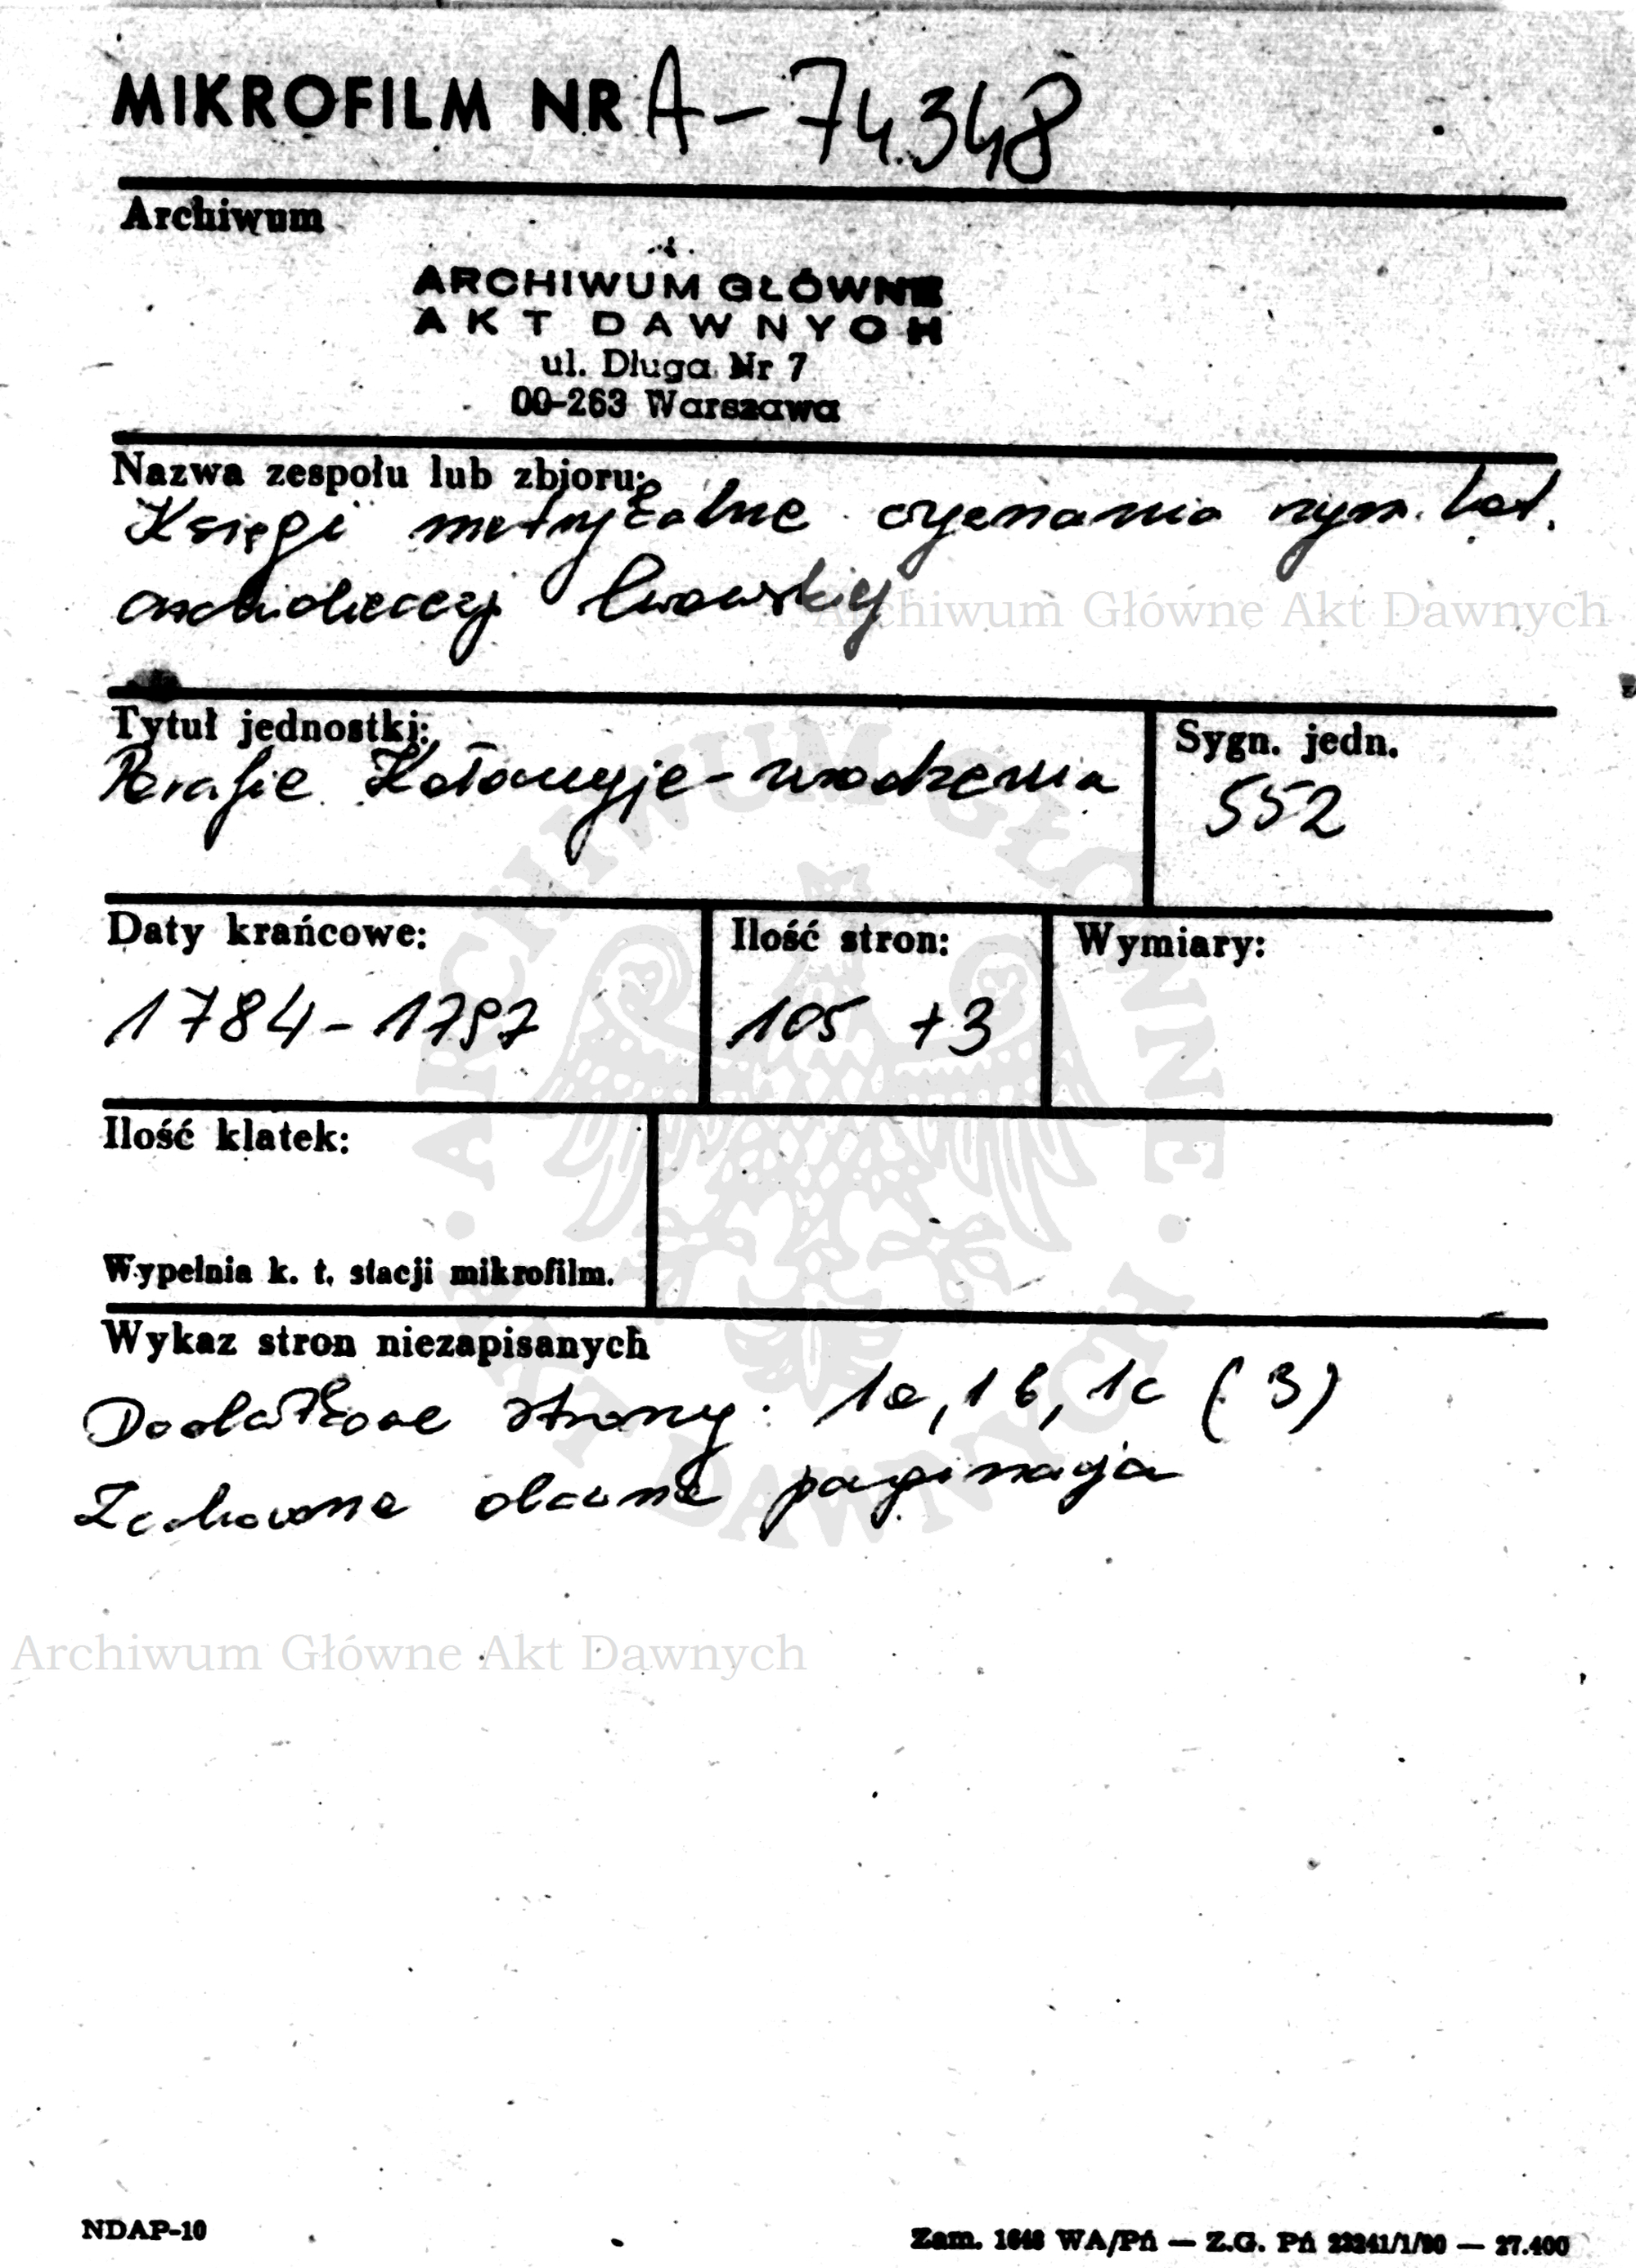 MIKROFILM NR A-74.348
Archiwum
ARCHIWUM GŁÓWNE
AKT DAWNYCH
ul. Długa Nr 7
00-263 Warszawa
Nazwa zespołu lub zbioru:
Księgi metrykalne wyznania rzym. kat.
archidiecezji lwowskiej
Archiwum Główne Akt Dawnych
Tytuł jednostki:
Parafie Kołomyje - urodzenia
Sygn. jedn.
552
Daty krańcowe:
1784-1797
Ilość stron:
105 +3
Wymiary:
Ilość klatek:
Wypełnia k. t. stacji mikrofilm.
ARCHIWUM GŁÓWNE · AKT DAWNYCH ·
Wykaz stron niezapisanych
Dodatkowe strony: 1a, 1b, 1c (3)
Zachowana dawna paginacja
Archiwum Główne Akt Dawnych
NDAP-10
Zam. 1648 WA/Pń — Z.G. Pń 23241/1/90 — 27.400